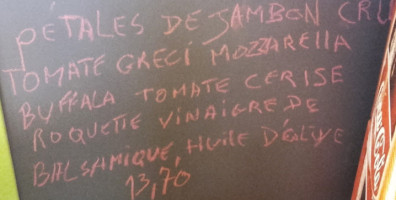 PÉTALES DE JAMBON CRU
TOMATE GRECI MOZZARELLA
BUFFALA TOMATE CERISE
ROQUETTE VINAIGRE DE
BALSAMIQUE, HUILE D'OLIVE
13,70